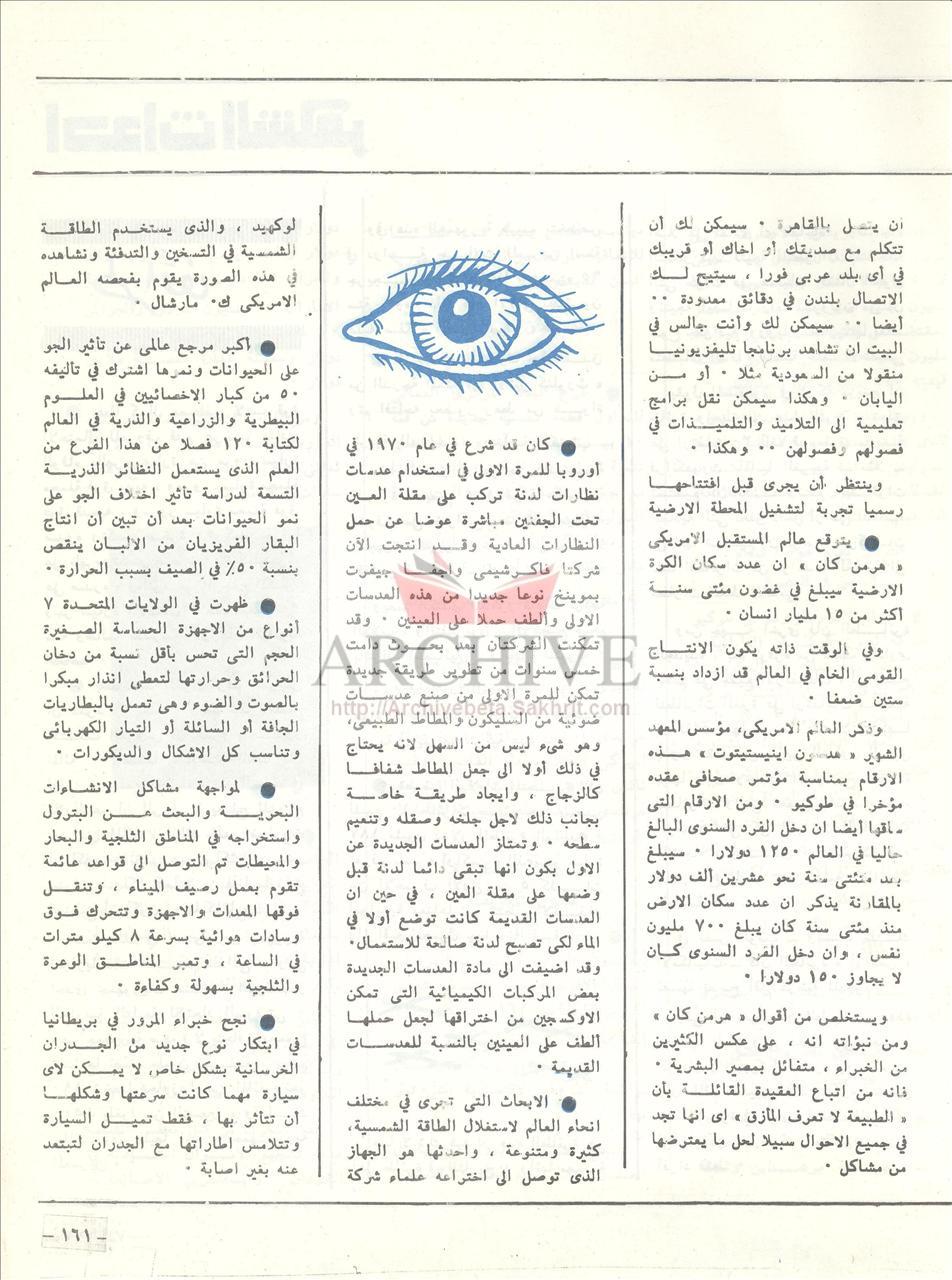 أن يتصل بالقاهرة ٠ سيمكن لك أن
تتكلم مع صديقك أو اخاك أو قريبك
في أى بلد عربى فورا ، سيتيح لــك
الاتصال بلندن في دقائق معدودة ٠٠
أيضا ٠٠ سيمكن لك وأنت جالس في
البيت ان تشاهد برنامجا تليفزيونيــا
منقولا من السعودية مثلا ٠ أو مــن
اليابان ٠ وهكذا سيمكن نقل برامج
تعليمية الى التلاميذ والتلميــذات في
فصولهم وفصولهن ٠٠ وهكذا ٠
وينتظر أن يجرى قبل افتتاحهــا
رسميا تجربة لتشغيل المحطة الارضية
● يتوقع عالم المستقبل الامريكى
« هرمن كان » ان عدد سكان الكرة
الارضية سيبلغ في غضون مئتى سنــة
أكثر من ١٥ مليار انسان ٠
وفي الوقت ذاته يكون الانتــاج
القومى الخام في العالم قد ازداد بنسبة
ستين ضعفا ٠
وذكر العالم الامريكى، مؤسس المعهد
الشهير « هدسون اينيستيتوت » هــذه
الارقام بمناسبة مؤتمر صحافى عقده
مؤخرا في طوكيو ٠ ومن الارقام التى
ساقها أيضا ان دخل الفرد السنوى البالغ
حاليا في العالم ١٢٥٠ دولارا ٠ سيبلغ
بعد مئتى سنة نحو عشرين ألف دولار
بالمقارنة يذكر ان عدد سكان الارض
منذ مئتى سنة كان يبلغ ٧٠٠ مليون
نفس ، وان دخل الفرد السنوى كــان
لا يجاوز ١٥٠ دولارا ٠
ويستخلص من أقوال « هرمن كان »
ومن نبوءاته انه ، على عكس الكثيرين
من الخبراء ، متفائل بمصير البشرية ٠
فانه من اتباع العقيدة القائلــة بأن
« الطبيعة لا تعرف المأزق » اى انها تجد
في جميع الاحوال سبيلا لحل ما يعترضها
من مشاكل ٠
● كان قد شرع في عام ١٩٧٠ في
أوروبا للمرة الاولى في استخدام عدسات
نظارات لدنة تركب على مقلة العين
تحت الجفنين مباشرة عوضا عن حمل
النظارات العادية وقــد انتجت الآن
شركتا فاكرشيمى واجفــا جيفرت
بمويتخ نوعا جديدا من هذه العدسات
الاولى وألطف حملا على العينين ٠ وقد
تمكنت الشركتان بعد بحــوث دامت
خمس سنوات من تطوير طريقة جديدة
تمكن للمرة الاولى من صنع عدســات
ضوئية من السليكون والمطاط الطبيعى،
وهو شىء ليس من السهل لانه يحتاج
في ذلك أولا الى جعل المطاط شفافــا
كالزجاج ، وايجاد طريقة خاصــة
بجانب ذلك لاجل جلخه وصقله وتنعيم
سطحه ٠ وتمتاز العدسات الجديدة عن
الاول بكون انها تبقى دائما لدنة قبل
وضعها على مقلة العين ، في حين ان
العدسات القديمة كانت توضع أولا في
الماء لكى تصبح لدنة صالحة للاستعمال٠
وقد اضيفت الى مادة العدسات الجديدة
بعض المركبات الكيميائية التى تمكن
الاوكسجين من اختراقها لجعل حملهــا
ألطف على العينين بالنسبة للعدســات
القديمة ٠
● الابحاث التى تجرى في مختلف
انحاء العالم لاستغلال الطاقة الشمسية،
كثيرة ومتنوعة ، واحدثها هو الجهاز
الذى توصل الى اختراعه علماء شركة
لوكهيد ، والذى يستخدم الطاقــة
الشمسية في التسخين والتدفئة ونشاهده
في هذه الصورة يقوم بفحصه العالم
الامريكى ك٠ مارشال ٠
● أكبر مرجع عالمى عن تأثير الجو
على الحيوانات ونموها اشترك في تأليفه
٥٠ من كبار الاخصائيين في العلــوم
البيطرية والزراعية والذرية في العالم
لكتابة ١٢٠ فصلا عن هذا الفرع من
العلم الذى يستعمل النظائر الذريــة
التسعة لدراسة تأثير اختلاف الجو على
نمو الحيوانات بعد أن تبين أن انتاج
البقار الفريزيان من الالبان ينقص
بنسبة ٥٠٪ في الصيف بسبب الحرارة ٠
● ظهرت في الولايات المتحــدة ٧
أنواع من الاجهزة الحساسة الصغيرة
الحجم التى تحس بأقل نسبة من دخان
الحرائق وحرارتها لتعطى انذار مبكرا
بالصوت والضوء وهى تعمل بالبطاريات
الجافة أو السائلة أو التيار الكهربائى
وتناسب كل الاشكال والديكورات ٠
● لمواجهة مشاكل الانشــاءات
البحريــة والبحث عــن البترول
واستخراجه في المناطق الثلجية والبحار
والمحيطات تم التوصل الى قواعد عائمة
تقوم بعمل رصيف الميناء ، وتنتقــل
فوقها المعدات والاجهزة وتتحرك فــوق
وسادات هوائية بسرعة ٨ كيلو مترات
في الساعة ، وتعبر المناطــق الوعرة
والثلجية بسهولة وكفاءة ٠
● نجح خبراء المرور في بريطانيا
في ابتكار نوع جديد من الجــدران
الخرسانية بشكل خاص، لا يمــكن لاى
سيارة مهما كانت سرعتها وشكلهــا
أن تتأثر بها ، فقط تميــل السيارة
وتتلامس اطاراتها مع الجدران لتبتعد
عنه بغير اصابة ٠
ARCHIVE
http://Archivebeta.Sakhrit.com
– ١٦١ –